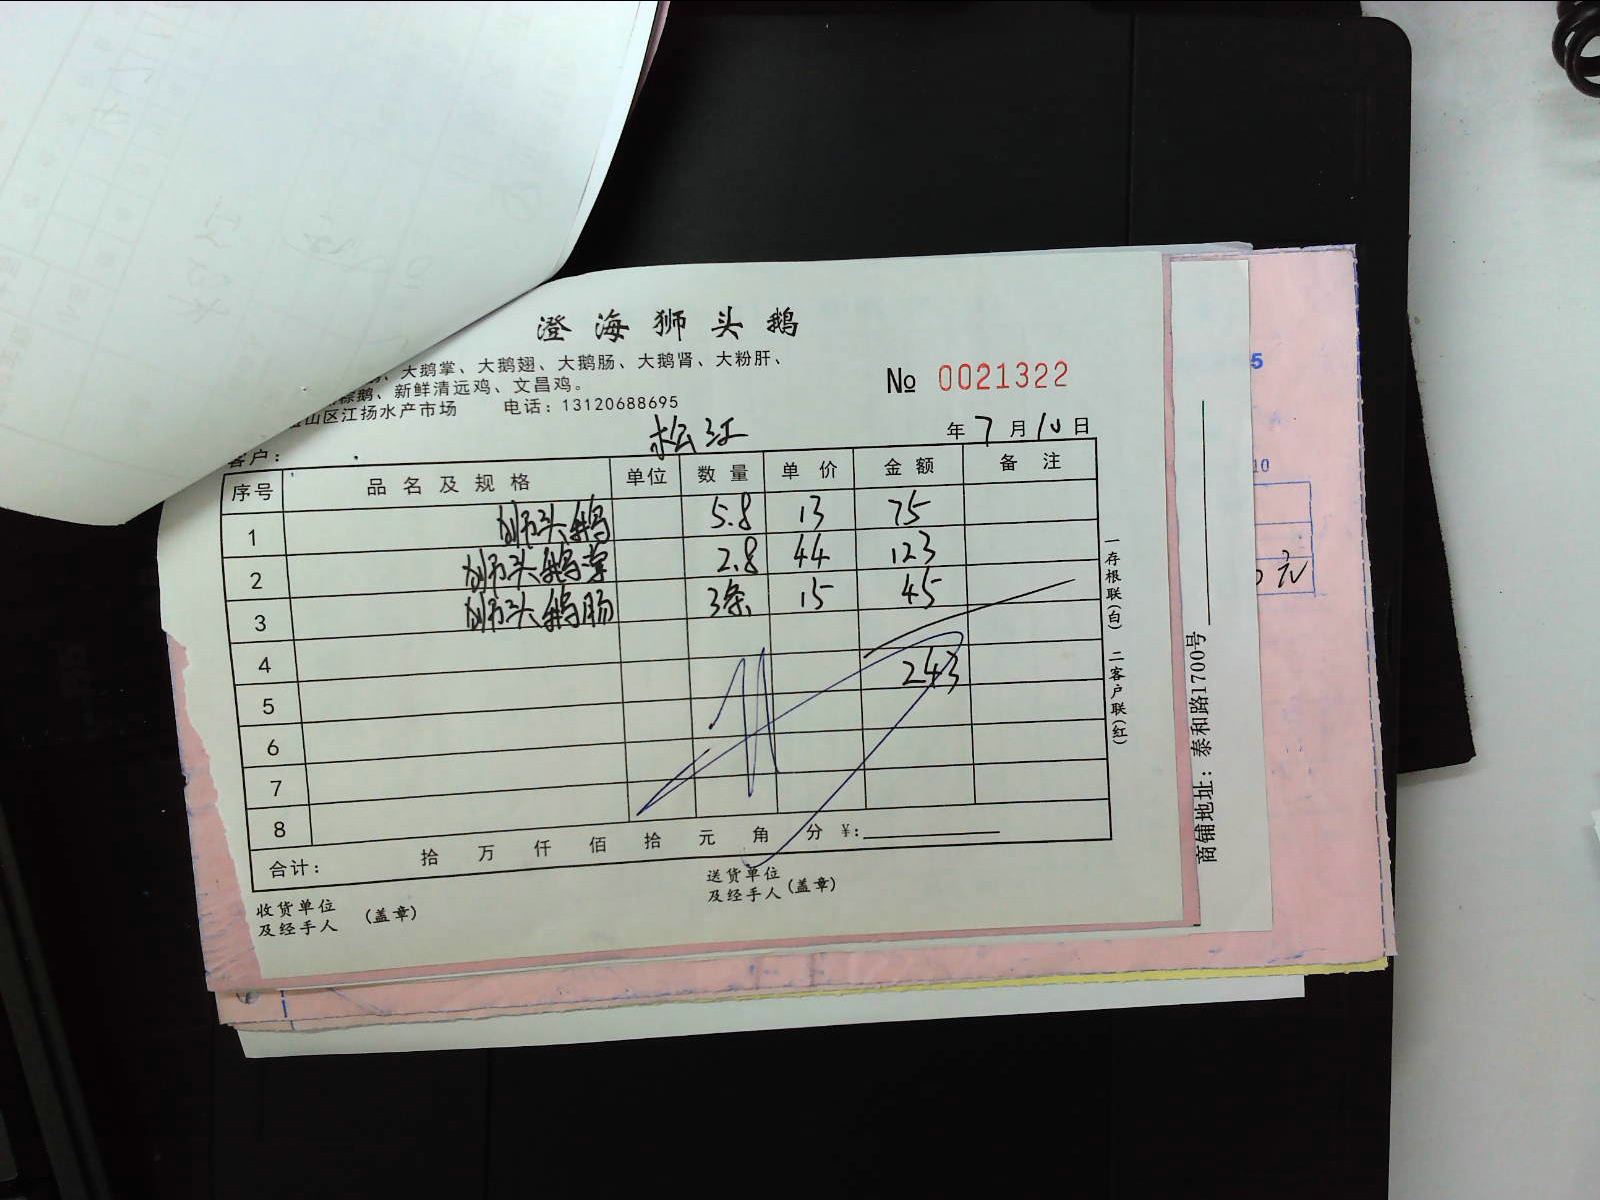 澄海狮头鹅
、大鹅掌、大鹅翅、大鹅肠、大鹅肾、大粉肝、
鹅、新鲜清远鸡、文昌鸡。
山区江扬水产市场 电话：13120688695
№ 0021322
客户： 松江
年 7 月 10 日
序号 品名及规格 单位 数量 单价 金额 备注
1 狮头鹅 5.8 13 75
2 狮头鹅掌 2.8 44 123
3 狮头鹅肠 3条 15 45
4
243
5
6
7
8
合计： 拾 万 仟 佰 拾 元 角 分 ￥：
收货单位
及经手人 (盖章)
送货单位
及经手人 (盖章)
一存根联(白) 二客户联(红)
商铺地址：泰和路1700号
5
10
元